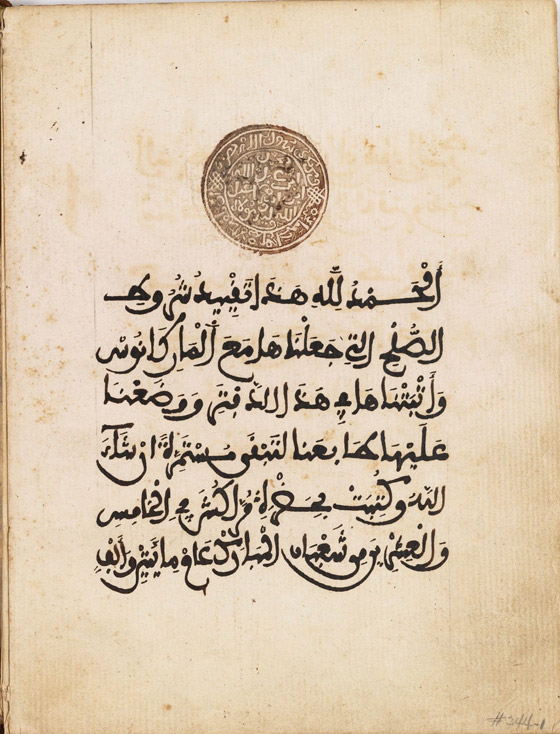 الحمد لله هذا تقييد شروط
الصلح التي جعلناها مع الماركانوس
وأثبتناها في هذا الدفتر ووضعنا
عليها طابعنا لتبقى مستمرة إن شاء
الله وكتبت بحضرة مراكش في الخامس
والعشرين من شعبان المبارك عام مائتين وألف
#244-1